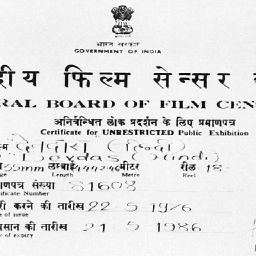 भारत सरकार
GOVERNMENT OF INDIA
ीय फिल्म सेन्सर
RAL BOARD OF FILM CEN
अनिर्बन्धित लोक प्रदर्शन के लिए प्रमाणपत्र
Certificate for UNRESTRICTED Public Exhibition
(हिन्दी)
Devdas (Hindi)
35mm लम्बाई मीटर रील 18
Length Metre Reel
माणपत्र संख्या 81608
rtificate Number
री करने की तारीख 22 5 1976
e of issue
सान की तारीख 21 5 1986
e of expiry